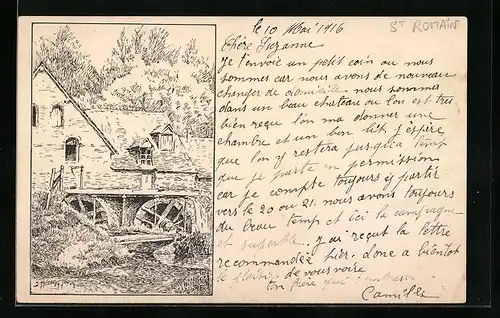 St ROMAIN
le 10 Mai 1916
Chère Suzanne
Je t'envoie un petit coin ou nous
sommes car nous avons de nouveau
changer de domicile nous sommes
dans un beau chateau ou l'on est très
bien reçu l'on ma donner une
chambre et un bon lit j'espère
que l'on y restera jusqu'a temp
que je parte en permission
car je compte toujours y partir
vers le 20 ou 21. nous avons toujours
du beau temp et ici la campagne
et superbe. j'ai reçut la lettre
recommandée hier. donc a bientôt
le plaisir de vous voire
ton frère qui t'embrasse
Camille